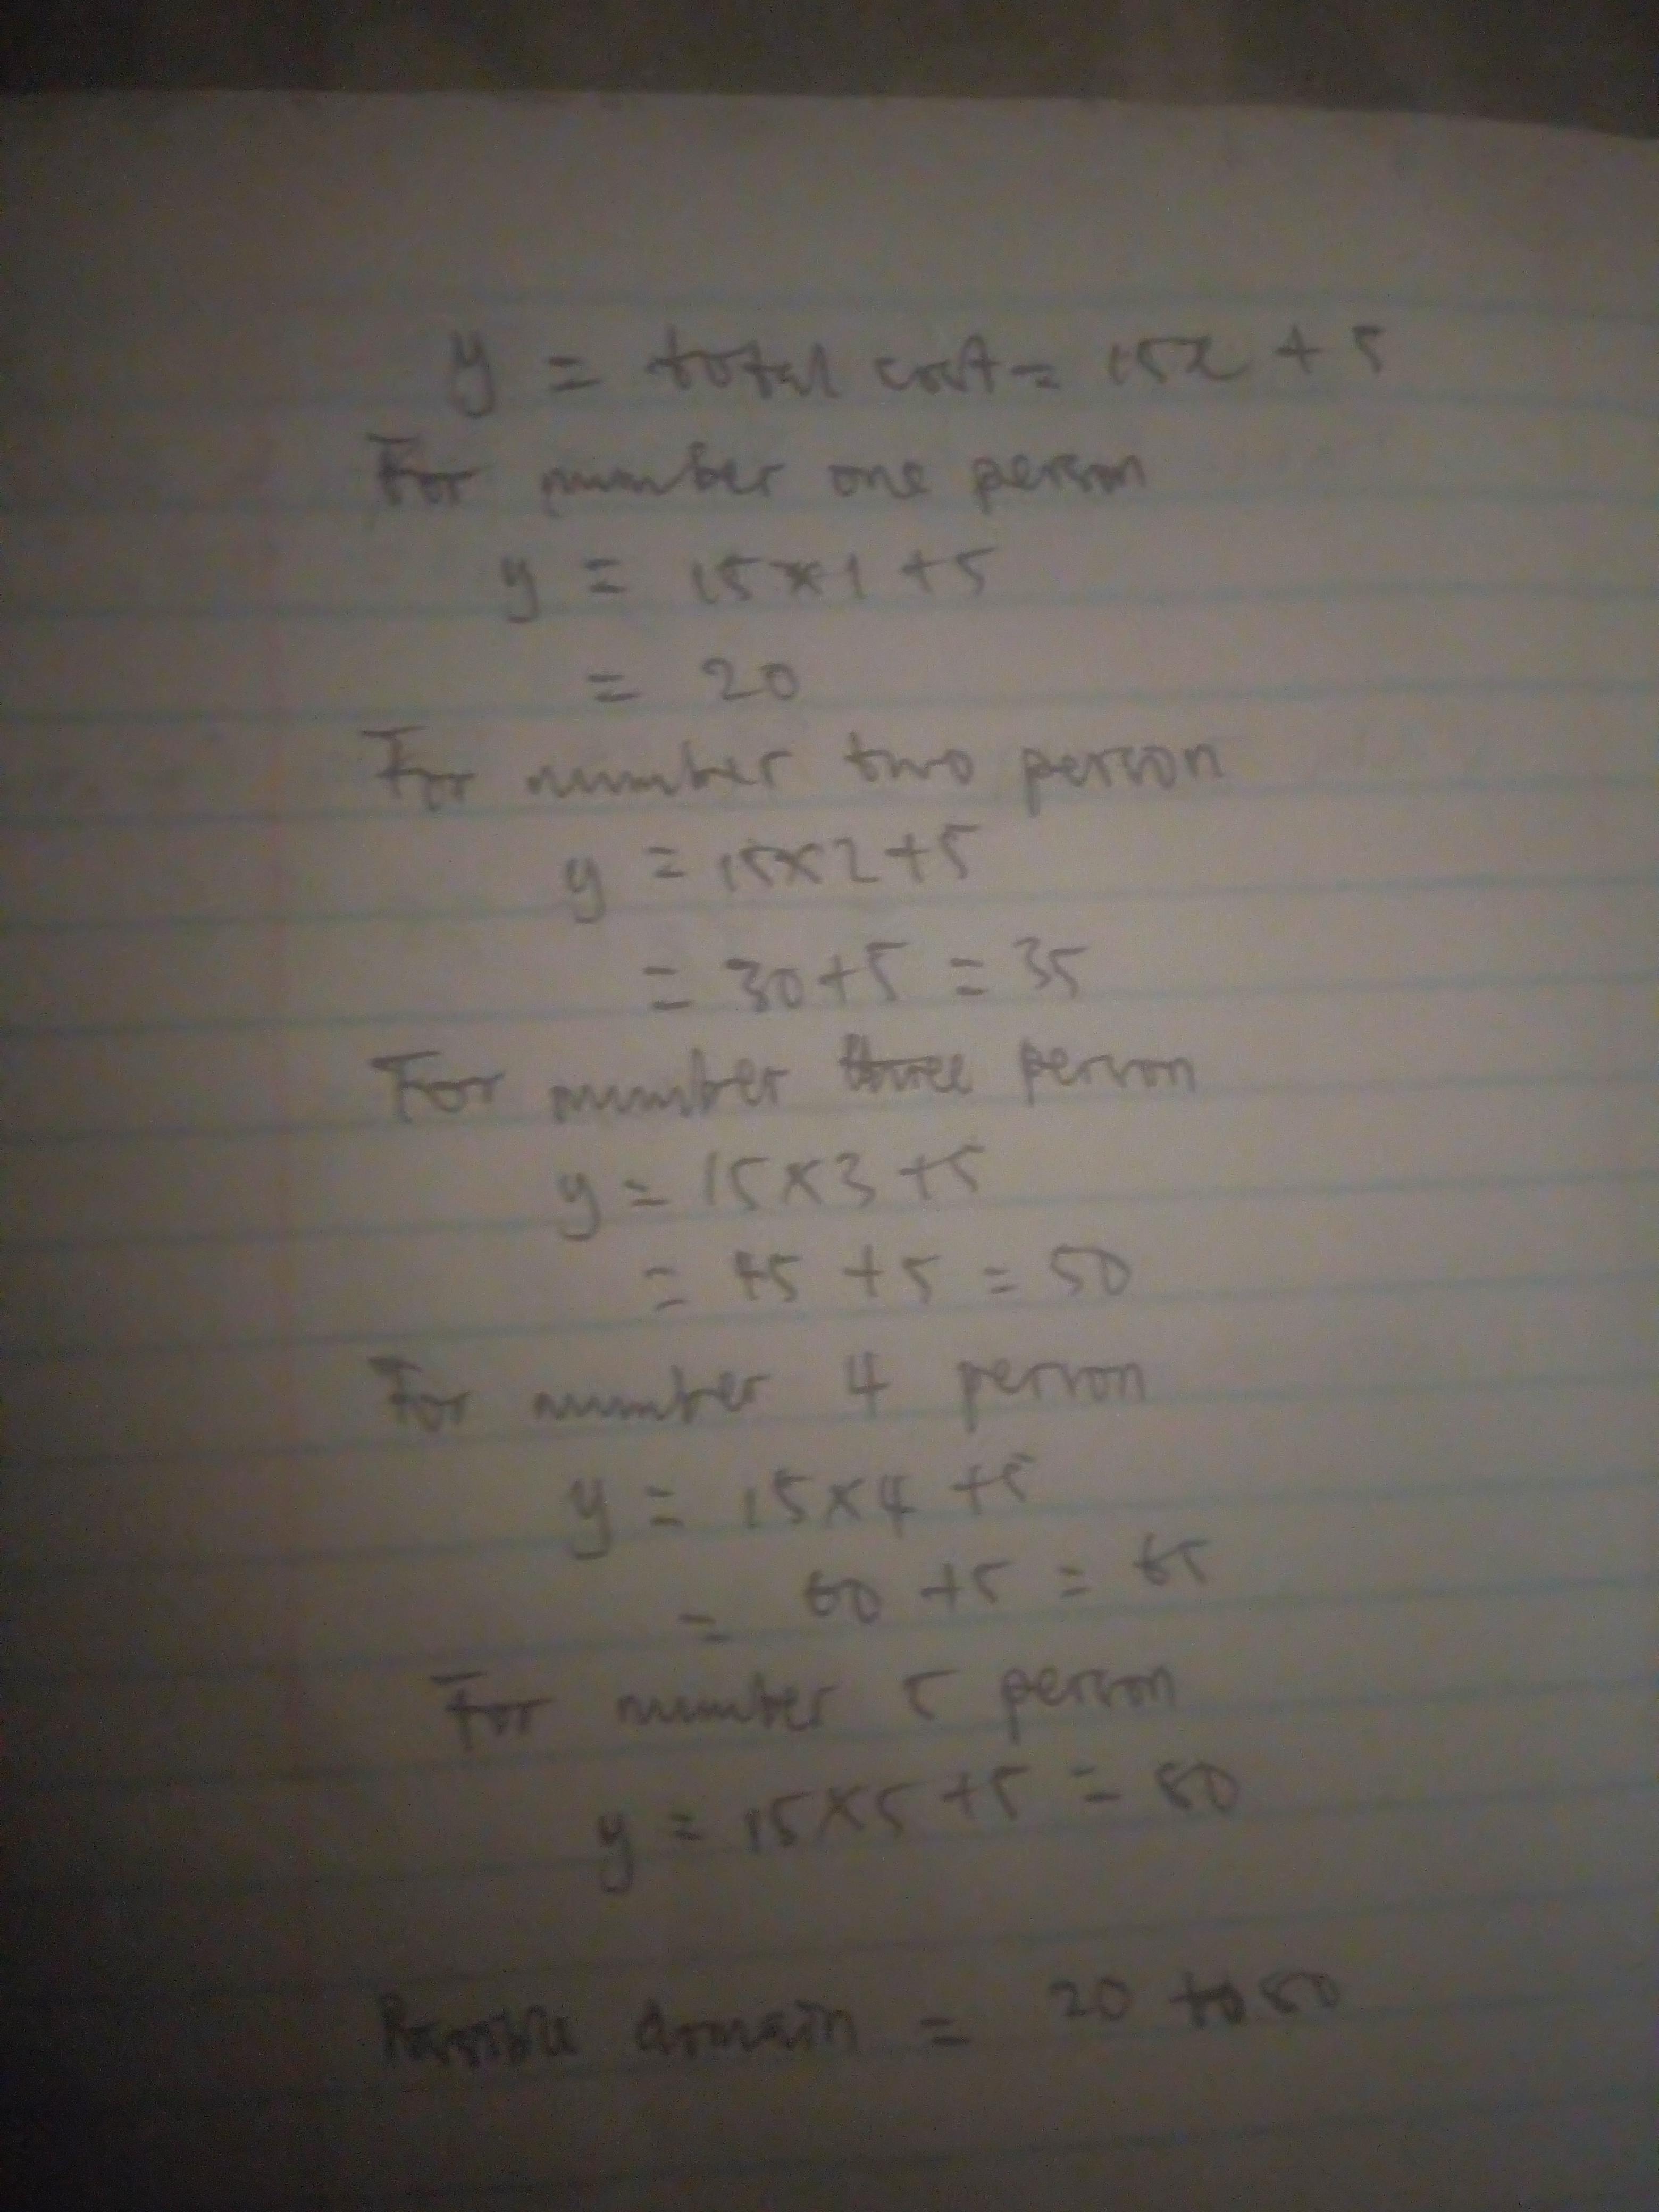 y = total cost = 15x + 5
For number one person
y = 15×1 +5
= 20
For number two person
y = 15×2+5
= 30+5 = 35
For number three person
y = 15×3 +5
= 45 +5 = 50
For number 4 person
y = 15×4 +5
= 60 +5 = 65
For number 5 person
y = 15×5+5 = 80
Possible domain = 20 to 80